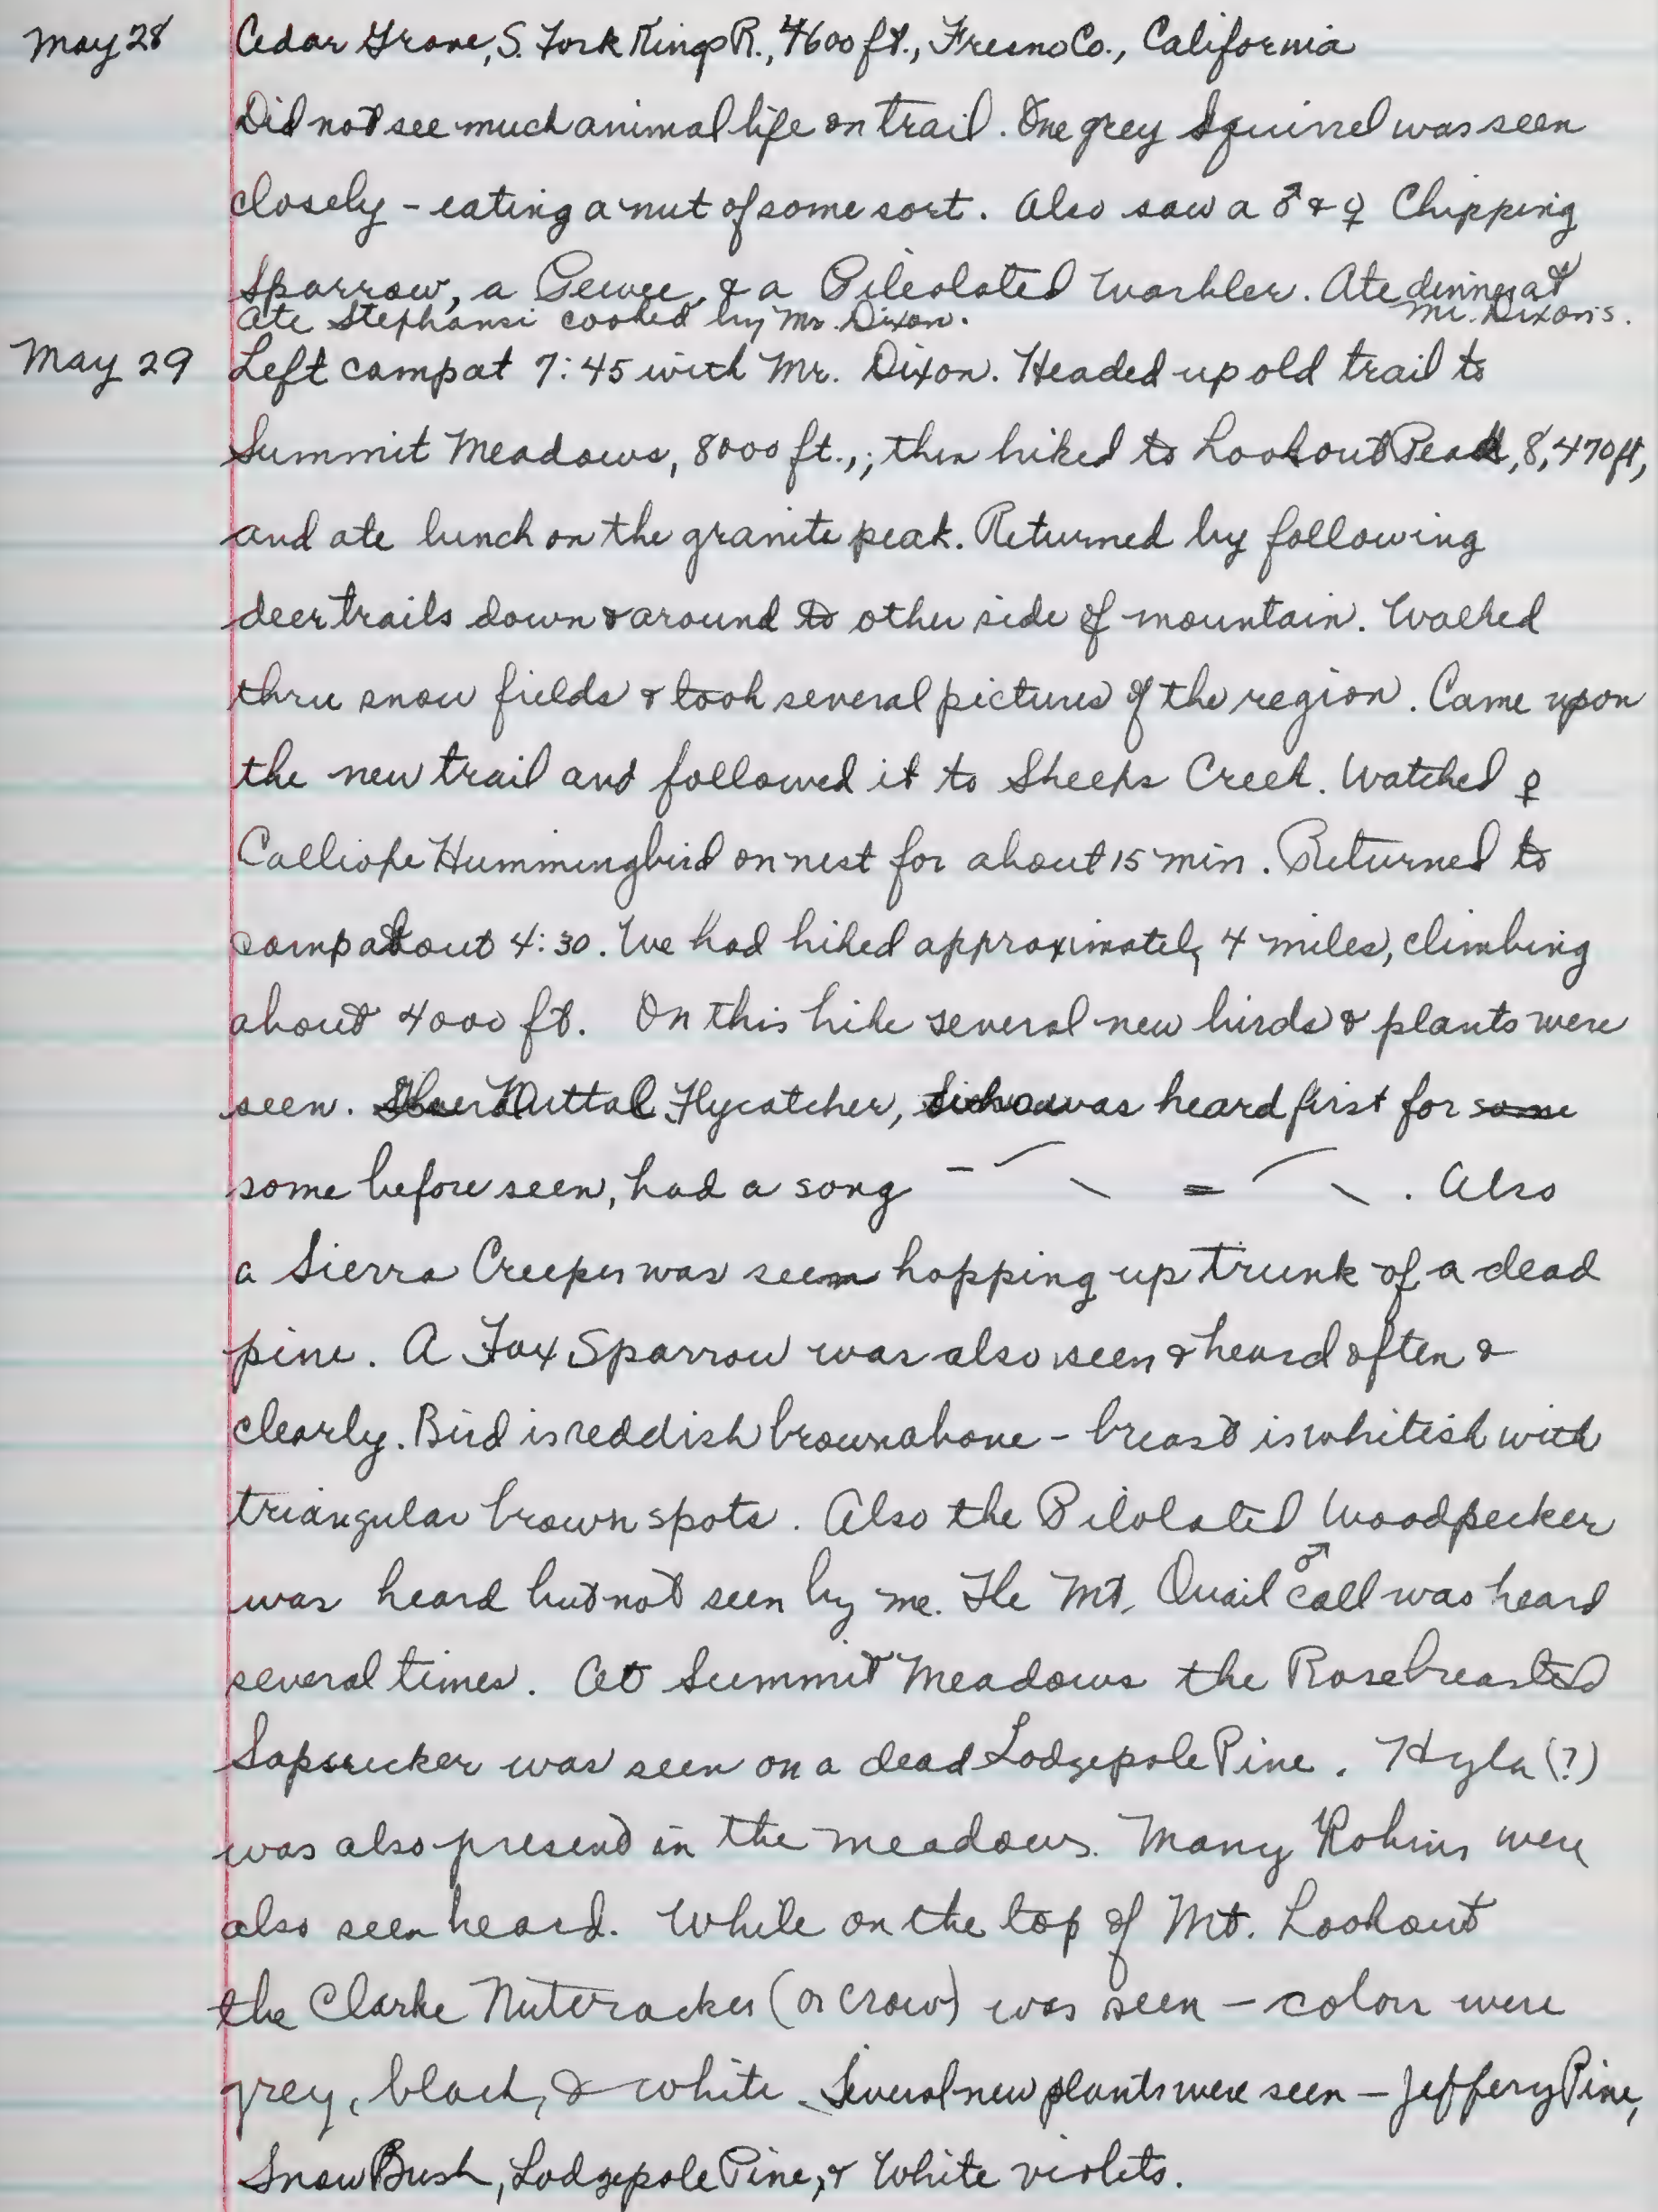 May 28 Cedar Grove, S. Fork Kings R., 4600 ft., Fresno Co., California
Did not see much animal life on trail. One grey Squirrel was seen
closely - eating a nut of some sort. Also saw a ♂ & ♀ Chipping
Sparrow, a Pewee, & a Pileolated Warbler. Ate dinner at
Mr. Dixon's.
ate Stephansi cooked by Mr. Dixon.
May 29 Left camp at 7:45 with Mr. Dixon. Headed up old trail to
Summit Meadows, 8000 ft.,; then hiked to Lookout Peak, 8,470 ft,
and ate lunch on the granite peak. Returned by following
deer trails down & around to other side of mountain. Walked
thru snow fields & took several pictures of the region. Came upon
the new trail and followed it to Sheeps Creek. Watched ♀
Calliope Hummingbird on nest for about 15 min. Returned to
camp about 4:30. We had hiked approximately 4 miles, climbing
about 4000 ft. On this hike several new birds & plants were
seen. Nuttal Flycatcher, was heard first for some
some before seen, had a song - ⁀ \ = ⁀ \ . Also
a Sierra Creeper was seen hopping up trunk of a dead
pine. A Fox Sparrow was also seen & heard often &
clearly. Bird is reddish brown above - breast is whitish with
triangular brown spots. Also the Pilolated Woodpecker
was heard but not seen by me. The Mt. Quail ♂ call was heard
several times. At Summit Meadows the Rosebreasted
Sapsucker was seen on a dead Lodgepole Pine. Hyla (?)
was also present in the meadows. Many Robins were
also seen heard. While on the top of Mt. Lookout
the Clarke Nutcracker (or Crow) was seen - colors were
grey, black, & white. Several new plants were seen - Jeffery Pine,
Snow Bush, Lodgepole Pine, & White violets.